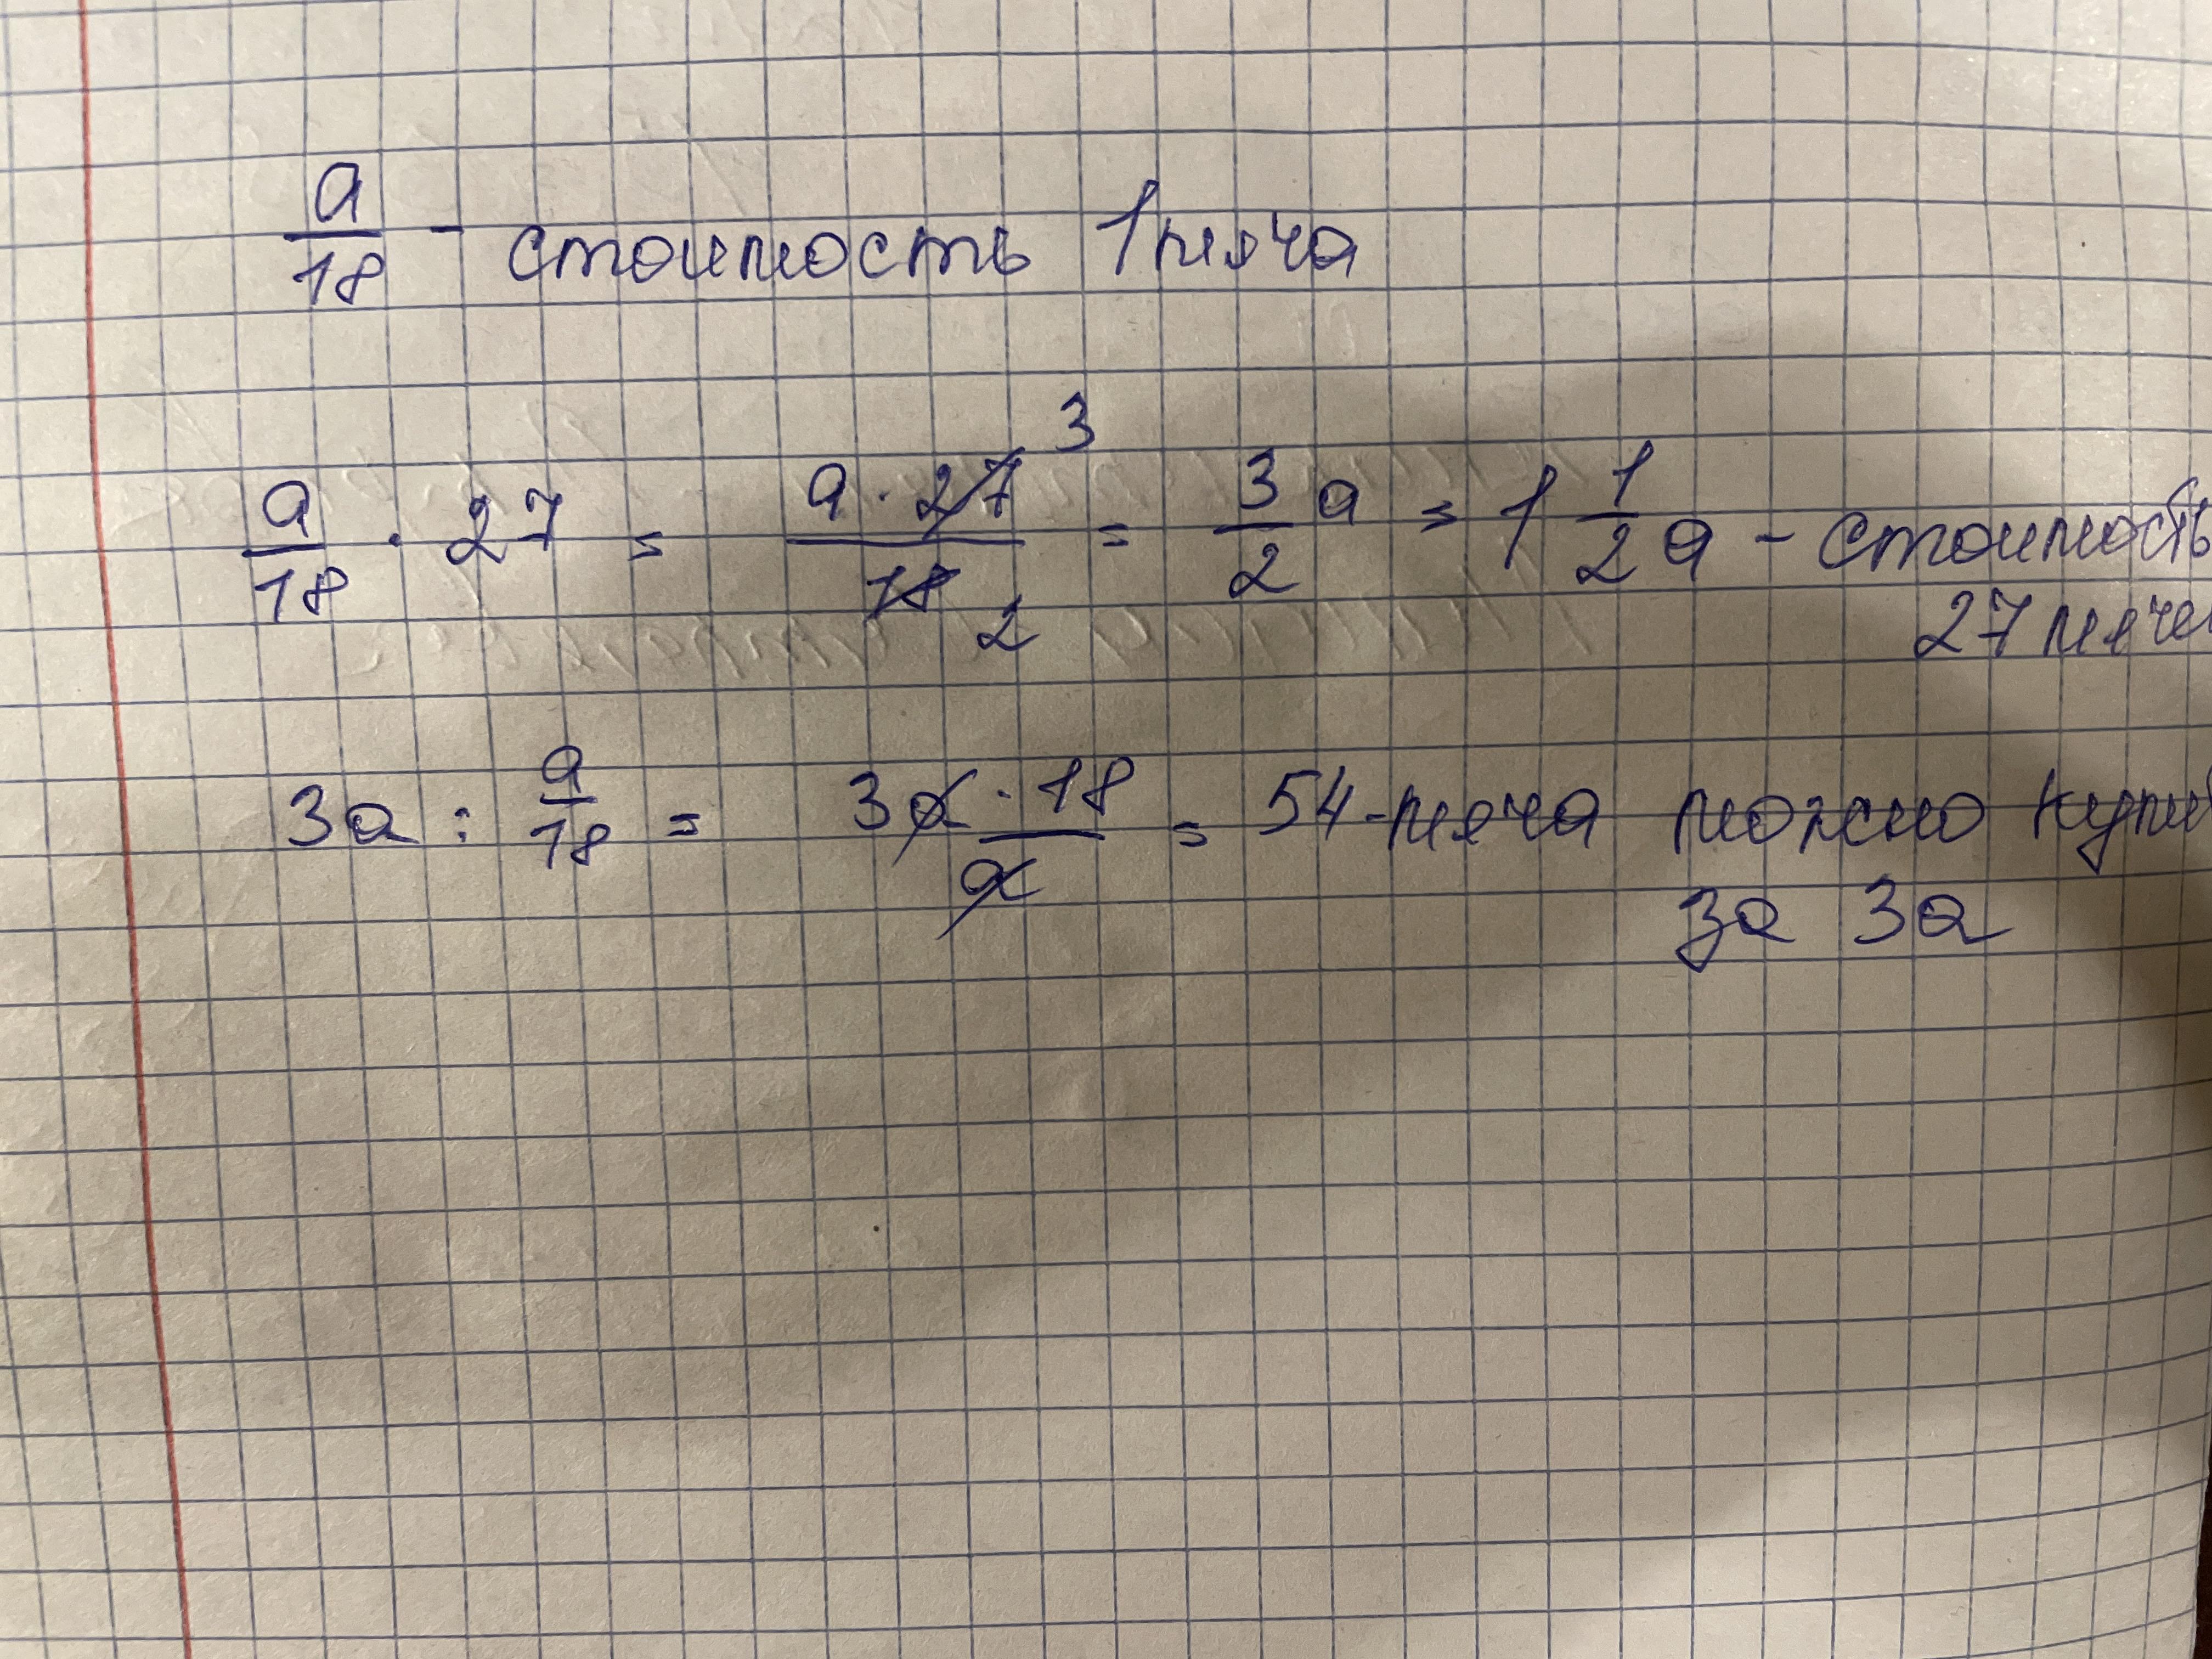 a/18 - стоимость 1 мяча
a/18 · 27 = a · 27 3 / 18 2 = 3/2 a = 1 1/2 a - стоимость
27 мяче
3a : a/18 = 3a · 18 / a = 54 - мяча можно купит
за 3a